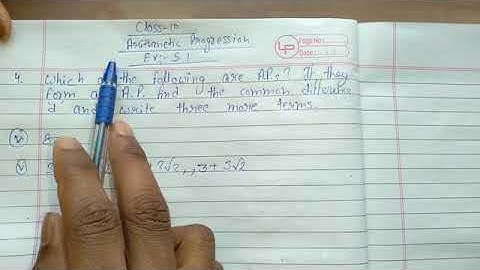 Class-10
Arithmetic Progression
Ex:- 5.1
LP
Page No:
Date:
4. Which of the following are APs? If they
form an A.P. find the common difference
d and write three more terms.
(v) 3 2√2, , 3 + 3√2